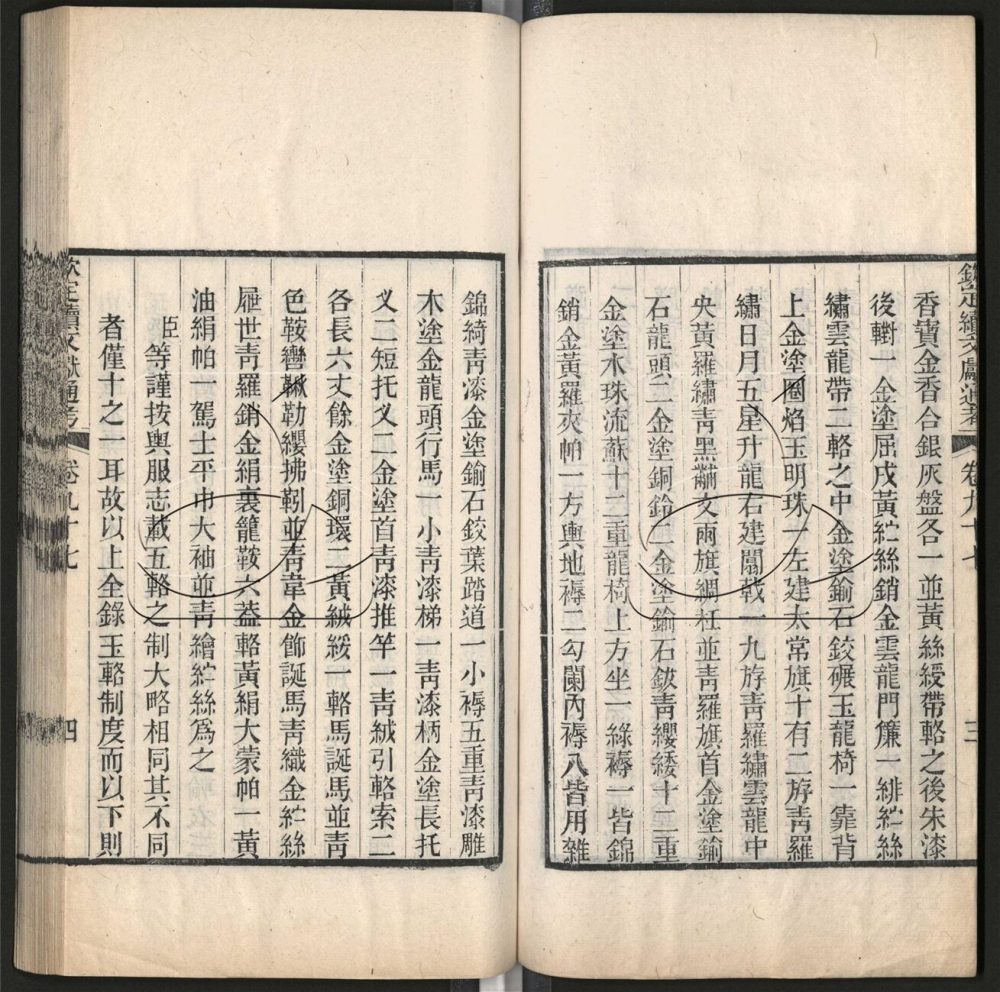 欽定續文獻通考 卷九十七 三
香寶金香合銀灰盤各一並黃絲綬帶輅之後朱漆
後轛一金塗屈戌黃紵絲銷金雲龍門簾一緋紵絲
繡雲龍帶二輅之中金塗鍮石鉸碾玉龍椅一靠背
上金塗圈焰玉明珠一左建太常旗十有二斿青羅
繡日月五星升龍右建闟戟一九斿青羅繡雲龍中
央黃羅繡青黑黼文兩旗綢杠並青羅旗首金塗鍮
石龍頭二金塗銅鈴二金塗鍮石鈸青纓緌十二重
金塗木珠流蘇十二重龍椅上方坐一綠褥一皆錦
銷金黃羅夾帕一方輿地褥二勾闌內褥八皆用雜
錦綺青漆金塗鍮石鉸葉踏道一小褥五重青漆雕
木塗金龍頭行馬一小青漆梯一青漆柄金塗長托
义二短托义二金塗首青漆推竿一青絨引輅索二
各長六丈餘金塗銅環二黃絨綏一輅馬誕馬並青
色鞍轡鞦勒纓拂靷並青韋金飾誕馬青織金紵絲
屜丗青羅銷金絹裏籠鞍六蓋輅黃絹大蒙帕一黃
油絹帕一駕士平巾大袖並青繪紵絲為之
臣等謹按輿服志載五輅之制大略相同其不同
者僅十之一耳故以上全錄玉輅制度而以下則
欽定續文獻通考 卷九十七 四